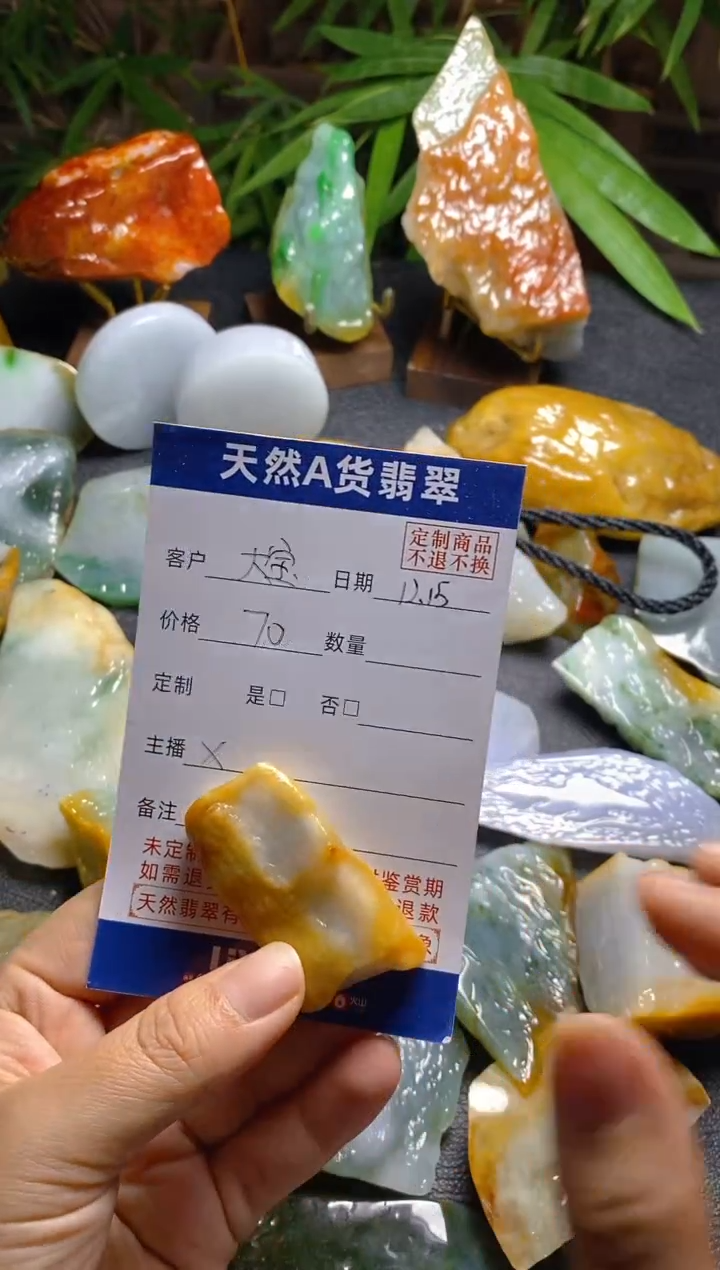 天然A货翡翠
定制商品
不退不换
客户 大宝 日期 12.15
价格 70 数量
定制 是□ 否□
主播 X
备注
未定制
如需退 鉴赏期
天然翡翠有 退款
火山